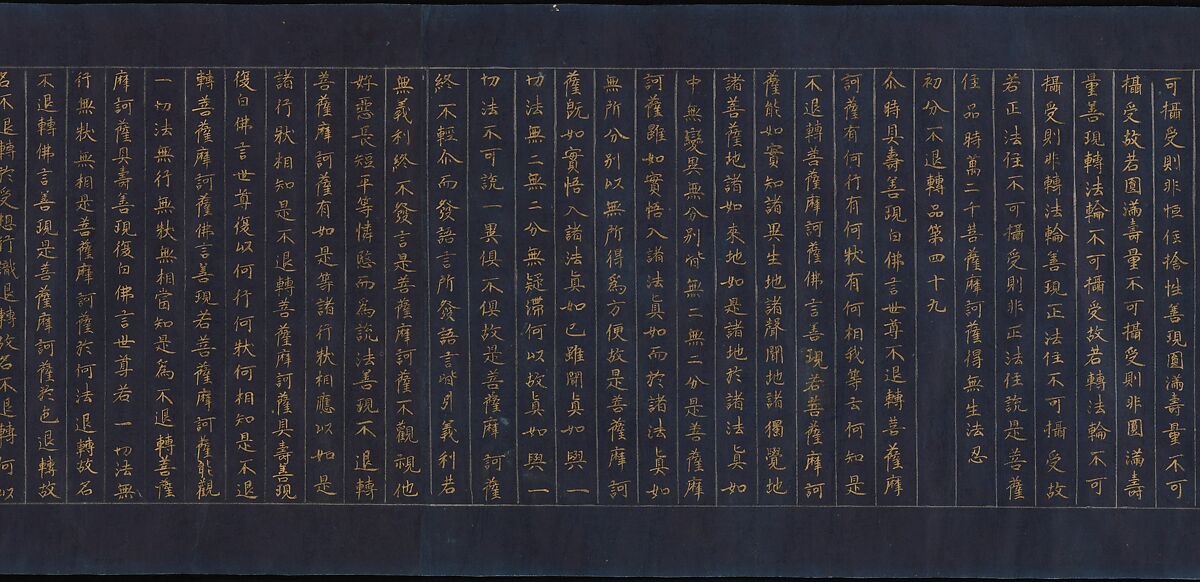 可攝受則非恒住捨性善現圓滿壽量不可
攝受故若圓滿壽量不可攝受則非圓滿壽
量善現轉法輪不可攝受故若轉法輪不可
攝受則非轉法輪善現正法住不可攝受故
若正法住不可攝受則非正法住說是菩薩
住品時萬二千菩薩摩訶薩得無生法忍
初分不退轉品第四十九
尒時具壽善現白佛言世尊不退轉菩薩摩
訶薩有何行有何狀有何相我等云何知是
不退轉菩薩摩訶薩佛言善現若菩薩摩訶
薩能如實知諸異生地諸聲聞地諸獨覺地
諸菩薩地諸如來地如是諸地於諸法真如
中無變異無分別皆無二無二分是菩薩摩
訶薩雖如實悟入諸法真如而於諸法真如
無所分別以無所得為方便故是菩薩摩訶
薩既如實悟入諸法真如已雖聞真如與一
切法無二無二分無疑滯何以故真如與一
切法不可說一異俱不俱故是菩薩摩訶薩
終不輕尒而發語言所發語言皆引義利若
無義利終不發言是菩薩摩訶薩不觀視他
好惡長短平等憐愍而為說法善現不退轉
菩薩摩訶薩有如是等諸行狀相應以如是
諸行狀相知是不退轉菩薩摩訶薩具壽善現
復白佛言世尊復以何行何狀何相知是不退
轉菩薩摩訶薩佛言善現若菩薩摩訶薩能觀
一切法無行無狀無相當知是為不退轉菩薩
摩訶薩具壽善現復白佛言世尊若一切法無
行無狀無相是菩薩摩訶薩於何法退轉故名
不退轉佛言善現是菩薩摩訶薩於色退轉故
名不退轉於受想行識退轉故名不退轉何以